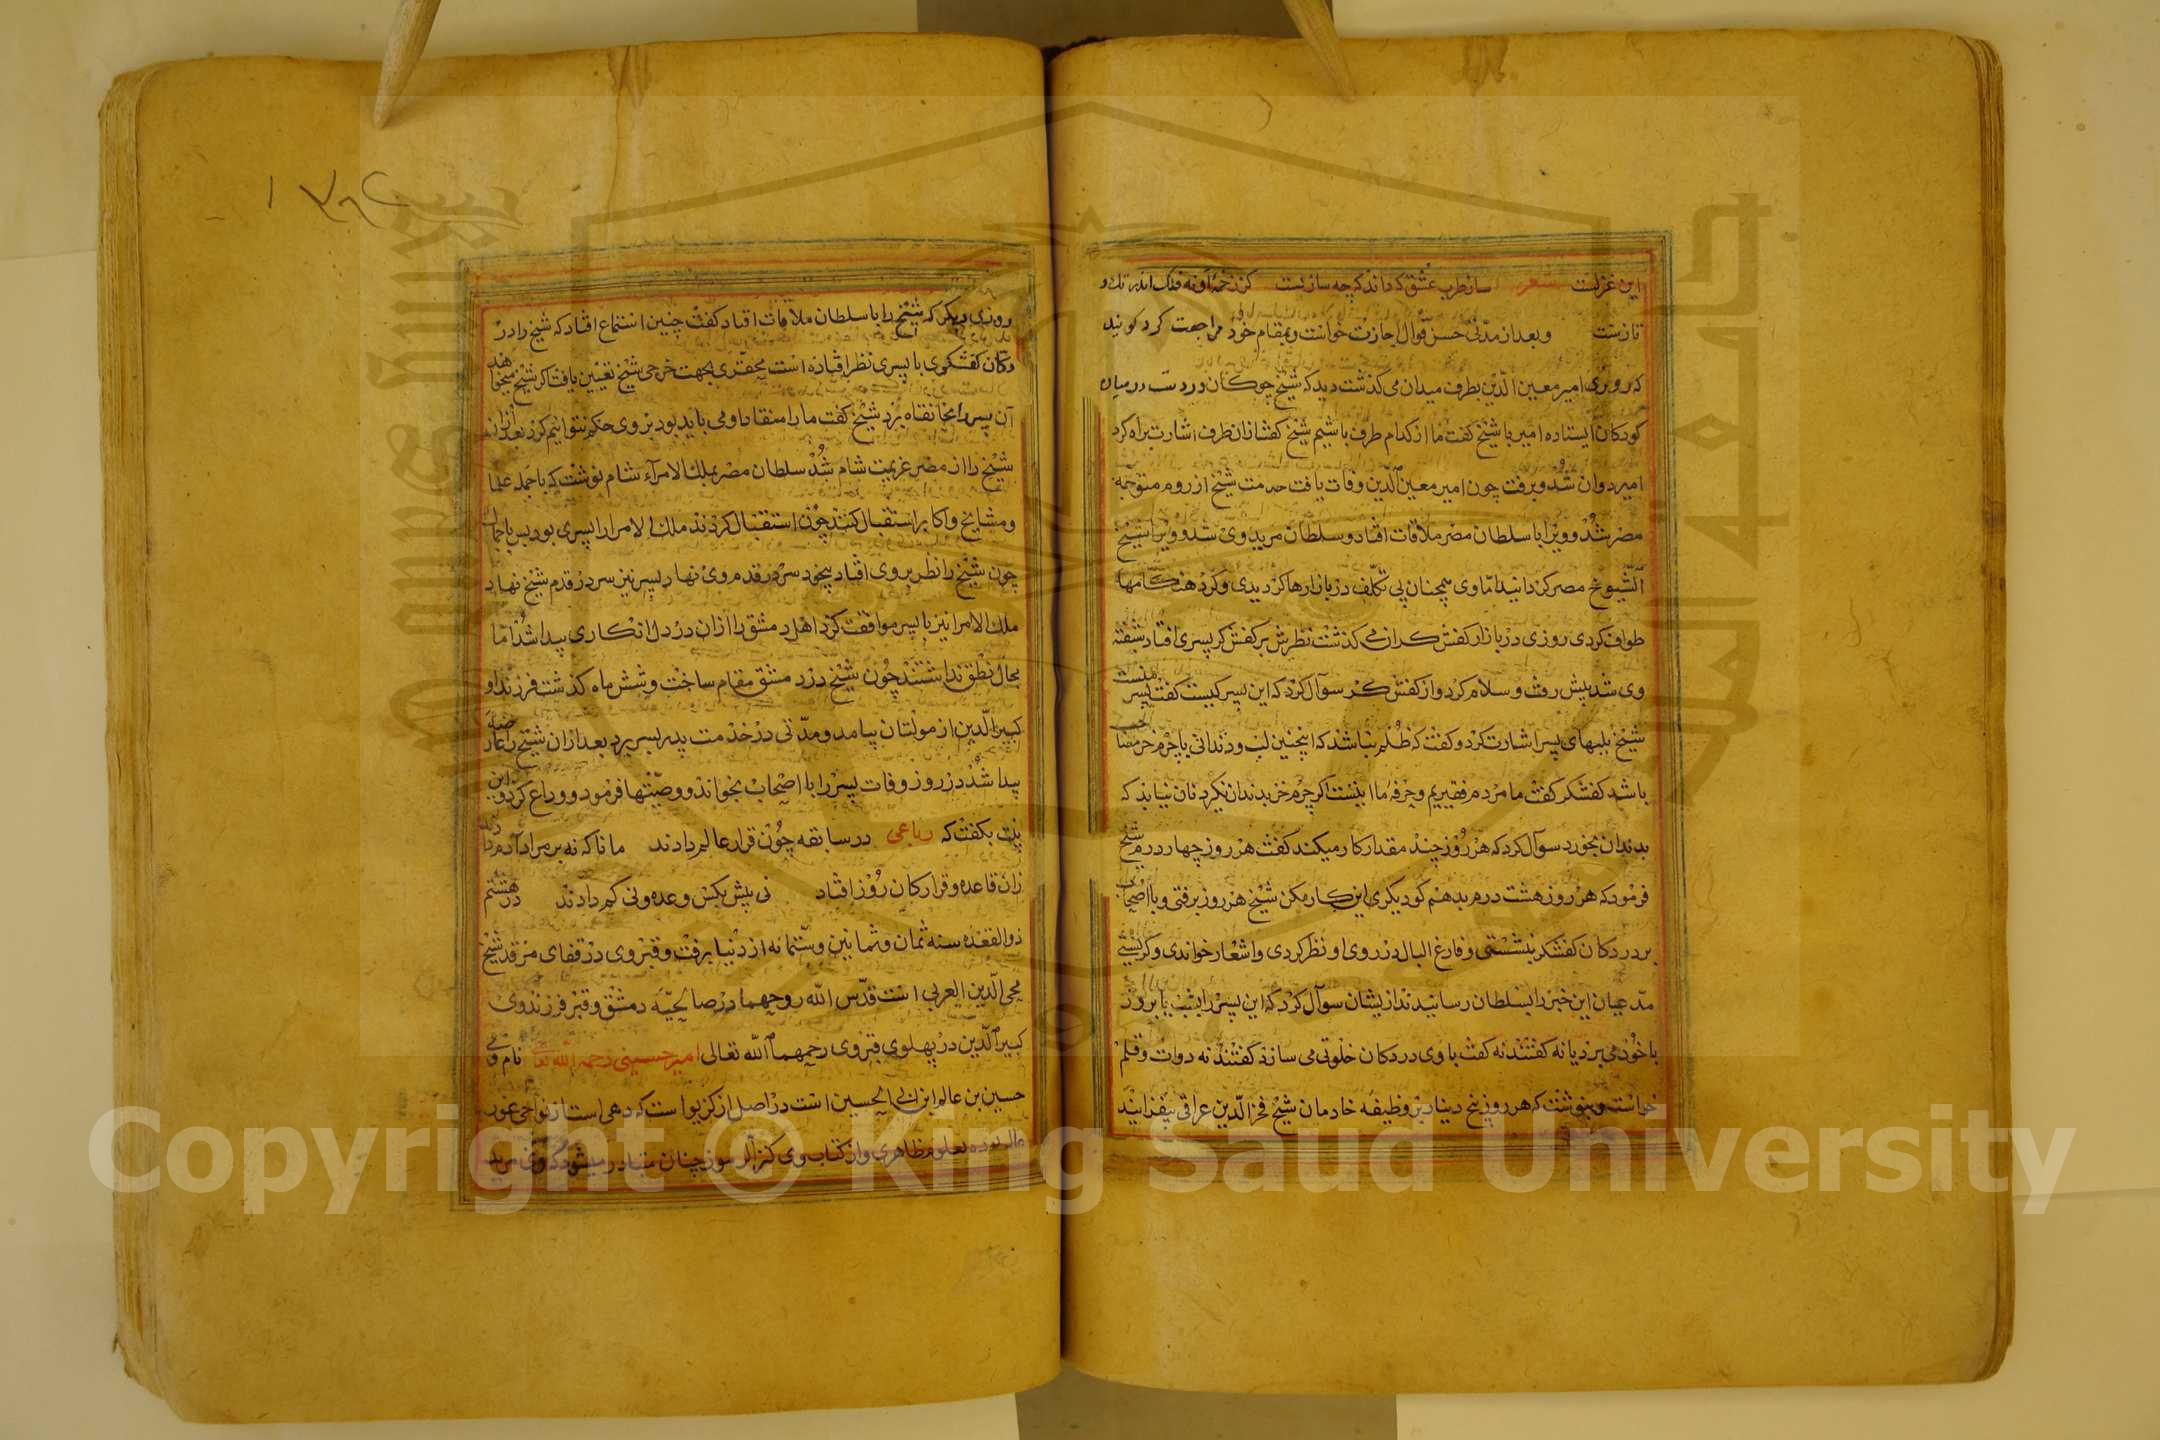 این غزلست شعر ساز طرب عشق که داند که چه سازست کز زخمهٔ او نه فلک اندر تک و
تازست وبعد از مدتی حسن قوال اجازت خواست و بمقام خود مراجعت کرد کویند
که روزی امیر معین الدین بطرف میدان می کذشت دید که شیخ چوکان در دست در میان
کودکان ایستاده امیر با شیخ کفت ما از کدام طرف باشیم شیخ کفت ازان طرف اشارت براه کرد
امیر روان شد و برفت چون امیر معین الدین وفات یافت شیخ از روم متوجه
مصر شد و ویرا با سلطان مصر ملاقات افتاد و سلطان مرید وی شد و ویرا شیخ
الشیوخ مصر کردانید اما وی همچنان بی تکلف در بازارها کردیدی و کرد هنکامها
طواف کردی روزی در بازار کفش کران می کذشت نظرش بر کفش کر پسری افتاد شیفته
وی شد پیش رفت و سلام کرد و از کفش کر سوآل کرد که این پسر کیست کفت پسر منست
شیخ بلبهای پسر اشارت کرد و کفت که ظلم نباشد که اینچنین لب و دندانی با چرم خر مصاحب
باشد کفشکر کفت ما مردم فقیریم و حرفهٔ ما اینست اکر چرم خر بدندان نکیرد نان نیابد که
بدندان بخورد سوآل کرد که هر روز چند مقدار کار میکند کفت هر روز چهار درم شیخ
فرمود که هر روز هشت درم بدهم کو دیکر این کار مکن شیخ هر روز برفتی و با اصحاب
بر در دکان کفشکر بنشستی و فارغ البال در روی او نظر کردی و اشعار خواندی و کریستی
مدعیان این خبر را بسلطان رسانیدند ازیشان سوآل کرد که این پسر را بشب یا بروز
با خود می برد یا نه کفتند نه کفت با وی در دکان خلوتی می سازد کفتند نه دوات و قلم
خواست و بنوشت که هر روز پنج دینار بر وظیفه خادمان شیخ فخر الدین عراقی بیفزایند
روزی دیکر که شیخ را با سلطان ملاقات افتاد کفت چنین استماع افتاد که شیخ را در
دکان کفشکری با پسری نظر افتاده است محقری بجهت خرجی شیخ تعیین یافت اکر شیخ میخواهد
آن پسر را بخانقاه برد شیخ کفت ما را منقاد او می باید بود بر وی حکم نتوانیم کرد بعد ازان
شیخ را از مصر عزیمت شام شد سلطان مصر بملک الامرآء شام نوشت که با جمله علما
و مشایخ و اکابر استقبال کنند چون استقبال کردند ملک الامرا را پسری بود بس با جمال
چون شیخ را نظر بر وی افتاد بیخود سر در قدم وی نهاد پسر نیز سر در قدم شیخ نهاد
ملک الامرا نیز با پسر موافقت کرد اهل دمشق را ازان در دل انکاری پیدا شد اما
مجال نطق نداشتند چون شیخ در دمشق مقام ساخت و شش ماه کذشت فرزند او
کبیر الدین از مولتان بیامد و مدتی در خدمت پدر بسر برد بعد ازان شیخ را عارضه
پیدا شد در روز وفات پسر را با اصحاب بخواند و وصیتها فرمود و وداع کرد و این
بیت بکفت که رباعی در سابقه چون قرار عالم دادند مانا که نه بر مراد آدم دادند
زان قاعده و قرار کان روز افتاد نی بیش بکس وعده ونی کم دادند در هشتم
ذوالقعده سنه ثمان و ثمانین و ستمائه از دنیا برفت و قبر وی در قفای مرقد شیخ
محی الدین العربی است قدس الله روحهما در صالحیهٔ دمشق و قبر فرزند وی
کبیر الدین در پهلوی قبر وی رحمهما الله تعالی امیر حسینی رحمه الله نام وی
حسین بن عالم ابن ابی الحسین است در اصل از کزیواست که دهی است از نواحی غور
عالم بوده بعلوم ظاهری و از کتاب وی کنز الرموز چنان متبادر میشود که وی مرید